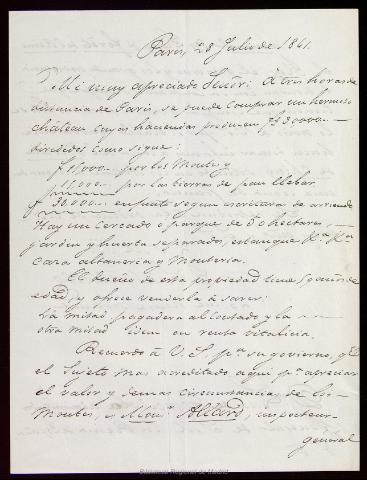 Paris, 28 Julio de 1841.
Mi muy apreciado Señor: À tres horas de
distancia de Paris, se puede comprar un hermoso
château cuyas haciendas producen, f 30000.-
divididos como sigue:
f 15,000.- por los Montes y
15,000.- por las tierras de pan llebar
f 30,000.- en junto segun escritura de arriendo
Hay un cercado o parque de 50 hectares,
jardin y huerta separados, estanque &a. &a.
caza altaneria y Monteria.
El dueño de esta propiedad tiene 50 años de
edad, y ofrece venderla à saver:
La mitad pagadera al contado y la
otra mitad idem en renta vitalicia.
Recuerdo à V. S. pa. su govierno, qe.
el Sujeto mas acreditado aqui pa. apreciar
el valor y demas circunstancias de los
Montes, es Monr. Allard, inspecteur
général
Biblioteca Regional de Madrid